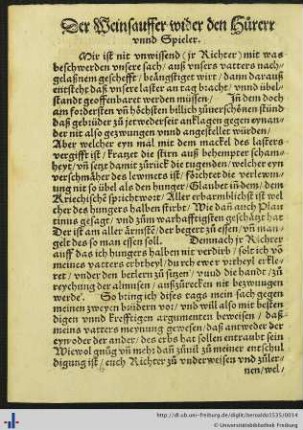 Der Weinsauffer wider den Hürer
vnnd Spieler.
Mir ist nit vnwissend (jr Richter) mit was
beschwerden vnsere sach / auß vnsers vatters nach-
gelaßnem geschefft / beängstiget wirt / dann darauß
entsteht daß vnsere laster an tag bracht / vnnd übel-
standt geoffenbaret werden müssen / In dem doch
am fordersten vñ höchsten billich zůuerschönen stünd
daß gebrüder zů jetwederseit anklagen gegen eynan-
der nit also gezwungen vnnd angestellet würden /
Aber welcher eyn mal mit dem mackel des lasters
vergifft ist / kratzt die stirn auß behempter scham-
heyt / vñ setzt damit zůruck die tugenden / welcher eyn
verschmäher des lewmets ist / förchtet die verlewm-
nung nit so übel als den hunger / Glaubet in dem / dem
Kriechischē sprichwort / Aller erbarmklichst ist wel-
cher des hungers halben stirbt / Wie dañ auch Plau
tinus gesagt / vnd zům warhafftigsten geschätzt hat
Der ist am aller ärmste / der begert zů essen / vñ man-
gelt des so man essen soll. Demnach jr Richter
auff das ich hungers halben nit verdirb / solt ich vō
meines vatters erbtheyl / durch ewer vrtheyl erkle-
ret / vnder den betlern zů setzen / vnnd die handt / zů
reychung der almusen / außzůrecken nit bezwungen
werde. So bring ich dises tags mein sach gegen
meinen zweyen brůdern vor / vnd will also mit besten
digen vnnd krefftigen argumenten beweisen / daß
meins vatters meynung gewesen / daß antweder der
eyn oder der ander / des erbs hat sollen entraubt sein
Wiewol gnůg vñ mehr daß zůuil zů meiner entschul
digung ist / euch Richter zů vnderweisen vnd zůler-
nen / wel /
http://dl.ub.uni-freiburg.de/diglit/beroaldo1535/0014
© Universitätsbibliothek Freiburg